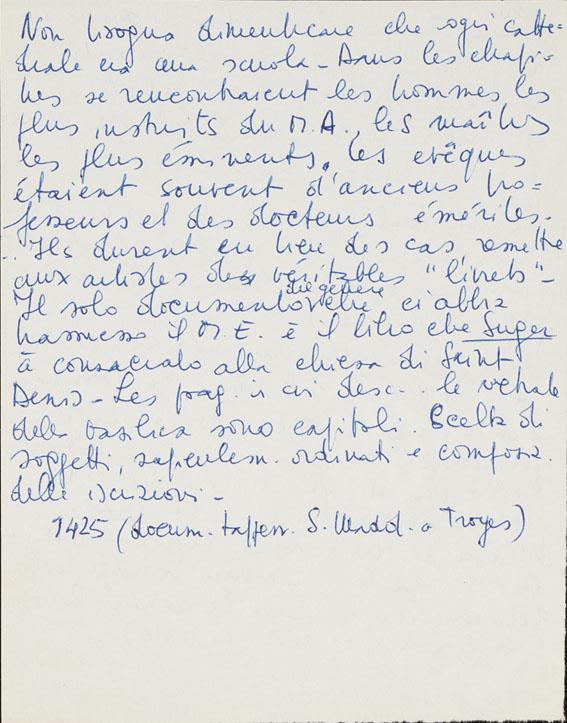 Non bisogna dimenticare che ogni catte-
drale era una scuola - Dans les chapi-
tres se rencontraient les hommes les
plus instruits du M.A., les maîtres
les plus éminents, les evêques
étaient souvent d'anciens pro-
fesseurs et des docteurs émérites.
.. Ils durent en bien des cas remettre
aux artistes des véritables "livrets" -
Il solo documento di genere che ci abbia
trasmesso il M.E. è il libro che Suger
à consacrato alla chiesa di Saint
Denis - Les pag. in cui desc.. le vetrate
della basilica sono capitoli. Scelta di
soggetti, sapientem. ordinati e composiz.
delle iscrizioni -
1425 (docum. tappezz. S. Madd. a Troyes)